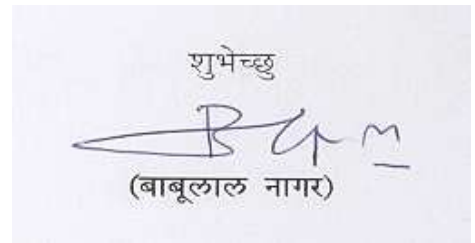 शुभेच्छु
(बाबूलाल नागर)